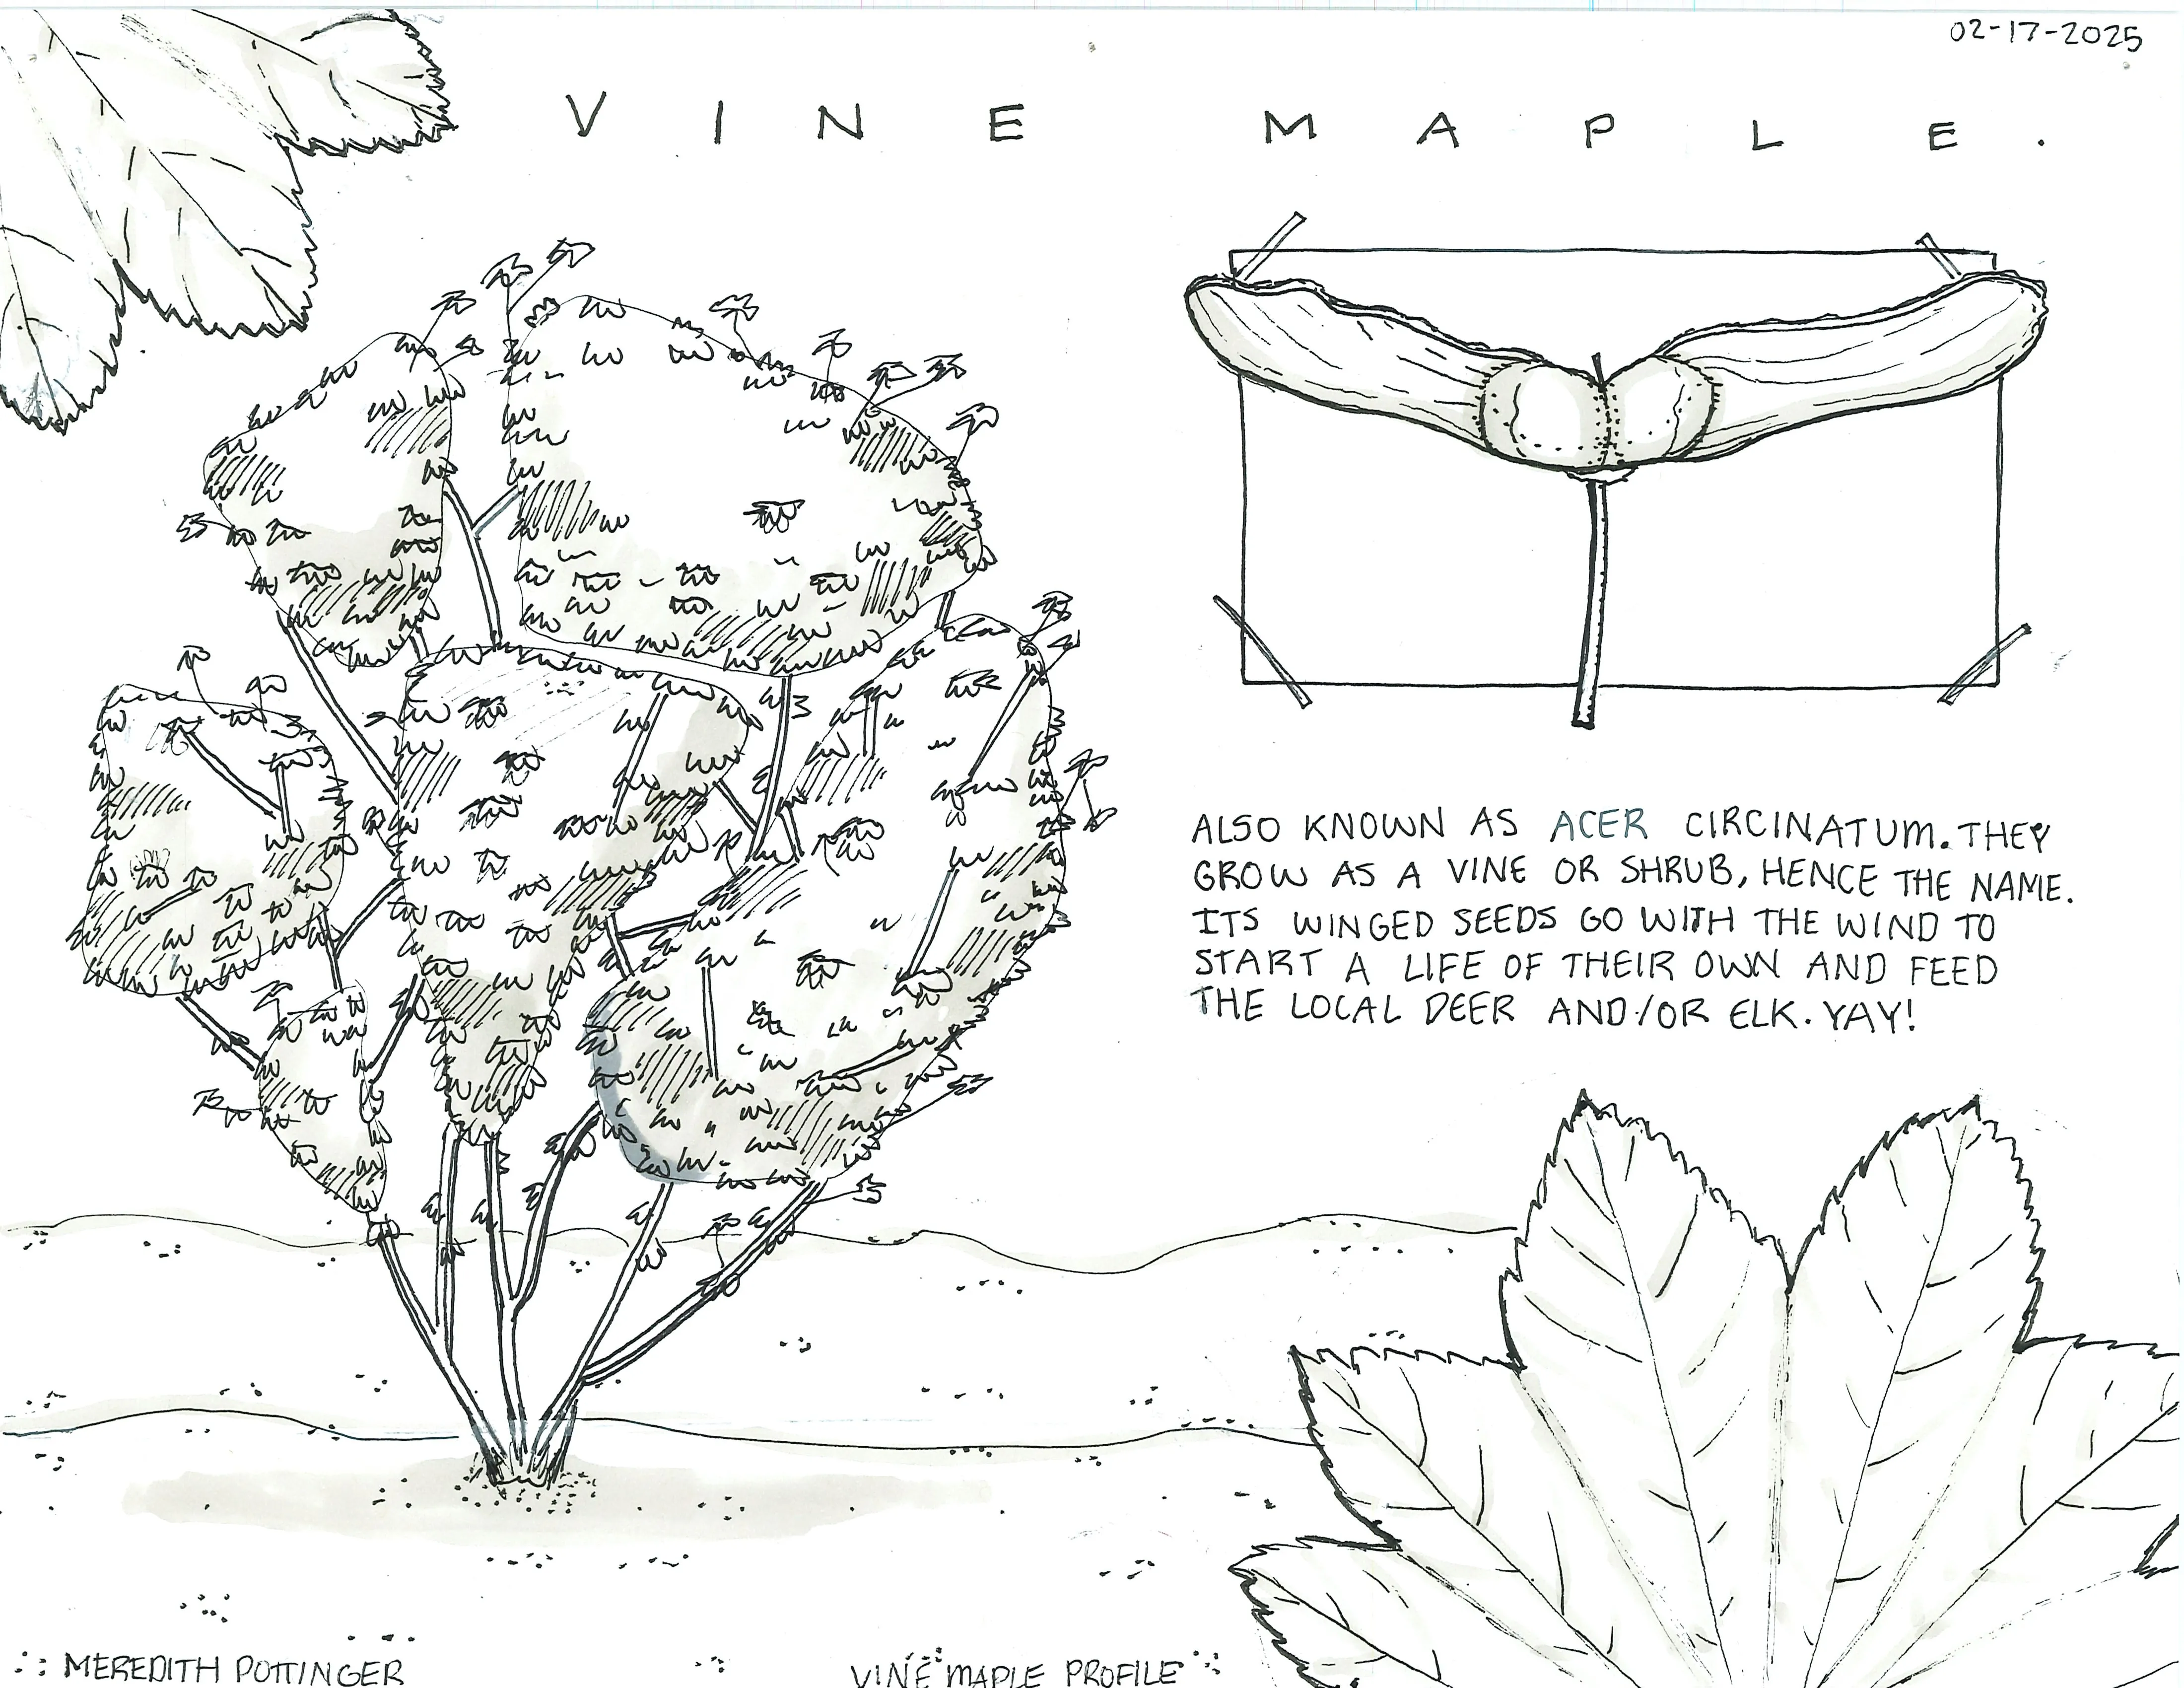 02-17-2025
VINE MAPLE.
ALSO KNOWN AS ACER CIRCINATUM. THEY
GROW AS A VINE OR SHRUB, HENCE THE NAME.
ITS WINGED SEEDS GO WITH THE WIND TO
START A LIFE OF THEIR OWN AND FEED
THE LOCAL DEER AND/OR ELK. YAY!
MEREDITH POTTINGER
VINE MAPLE PROFILE